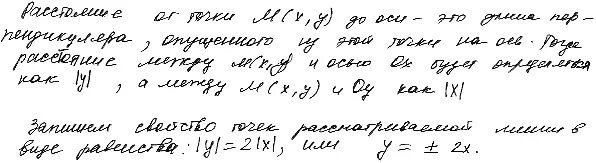 Расстояние от точки M(x, y) до оси – это длина пер-
пендикуляра, опущенного из этой точки на ось. Тогда
расстояние между M(x,y) и осью Ox будет определяться
как |y|, а между M(x,y) и Oy как |x|
Запишем свойство точек рассматриваемой линии в
виде равенства: |y|=2|x|, или y = ± 2x.